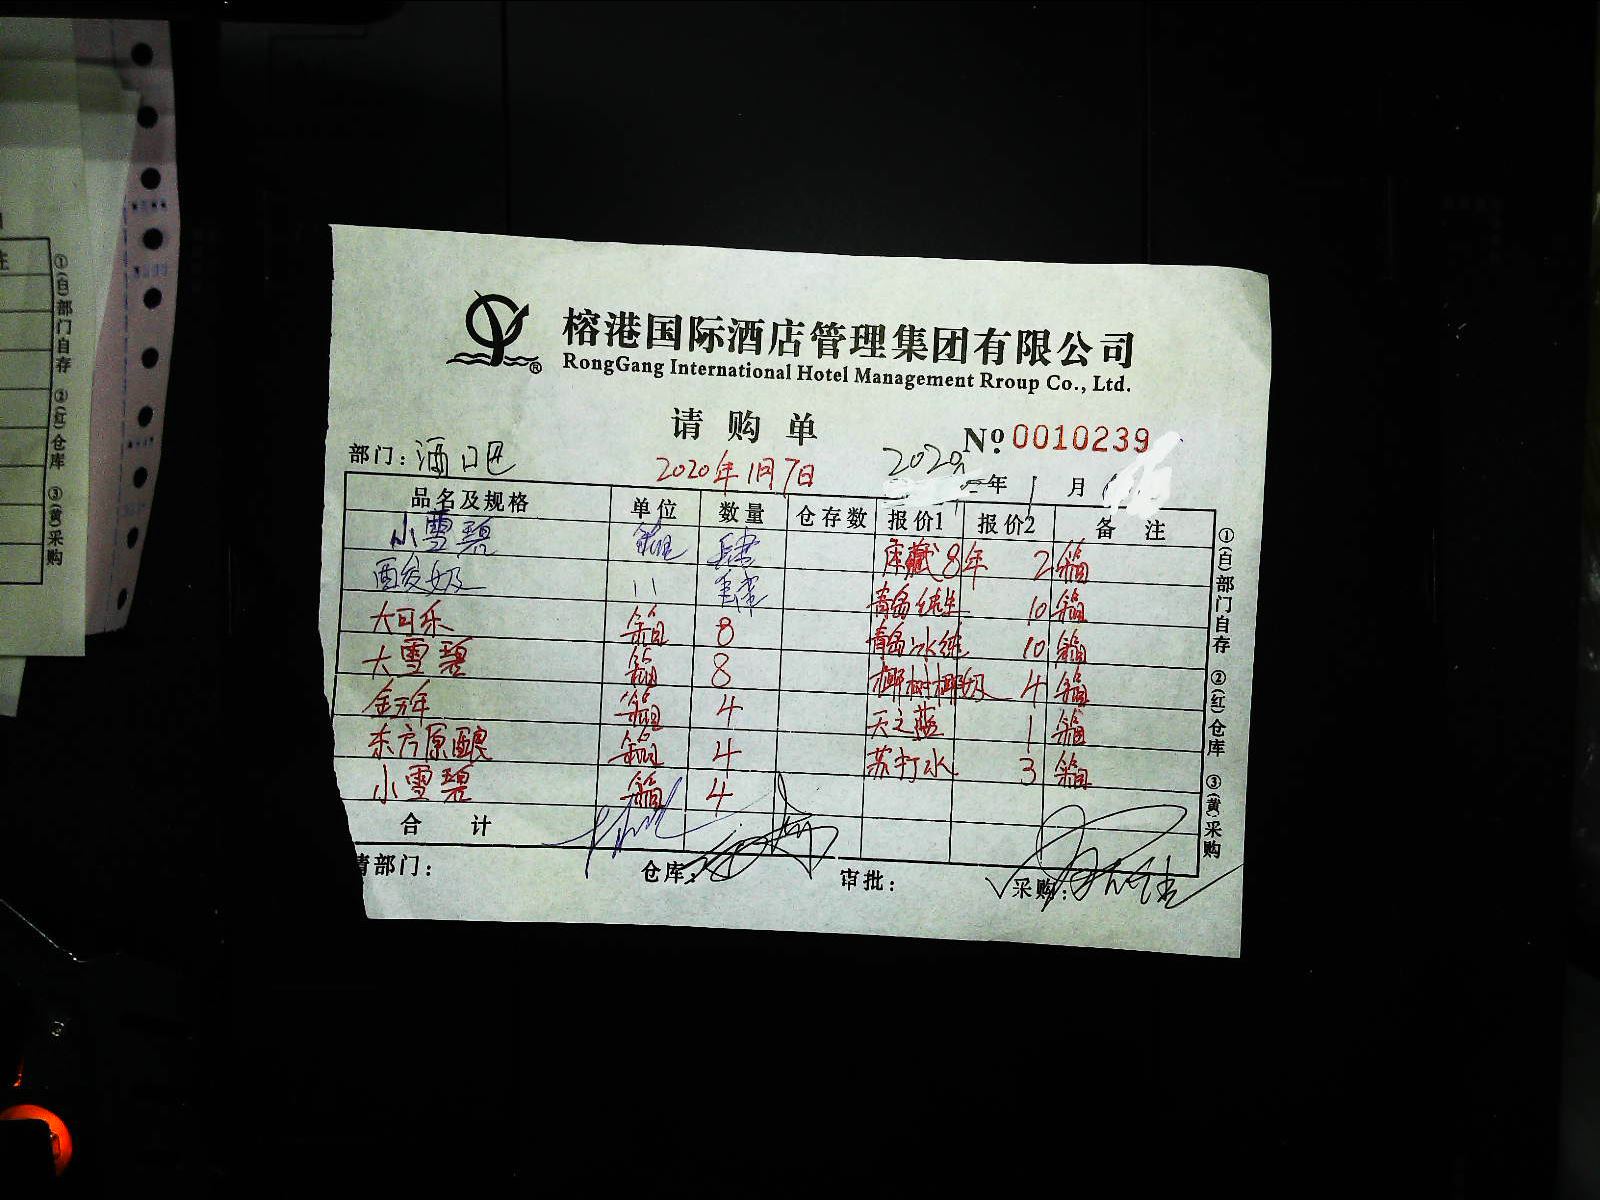 榕港国际酒店管理集团有限公司
RongGang International Hotel Management Rroup Co., Ltd.
请购单
№ 0010239
部门: 酒吧 2020年1月7日 2020 年 1 月
品名及规格 单位 数量 仓存数 报价1 报价2 备注
小雪碧 箱 肆 库藏8年 2箱
酸奶 11 肆 青岛纯生 10箱
大可乐 箱 8 青岛冰纯 10箱
大雪碧 箱 8 椰树椰奶 4箱
金万年 箱 4 天之蓝 1箱
东方原酿 箱 4 苏打水 3箱
小雪碧 箱 4
合计
请部门: 仓库: 审批: √采购:
①(白)部门自存 ②(红)仓库 ③(黄)采购
①(白)部门自存 ②(红)仓库 ③(黄)采购